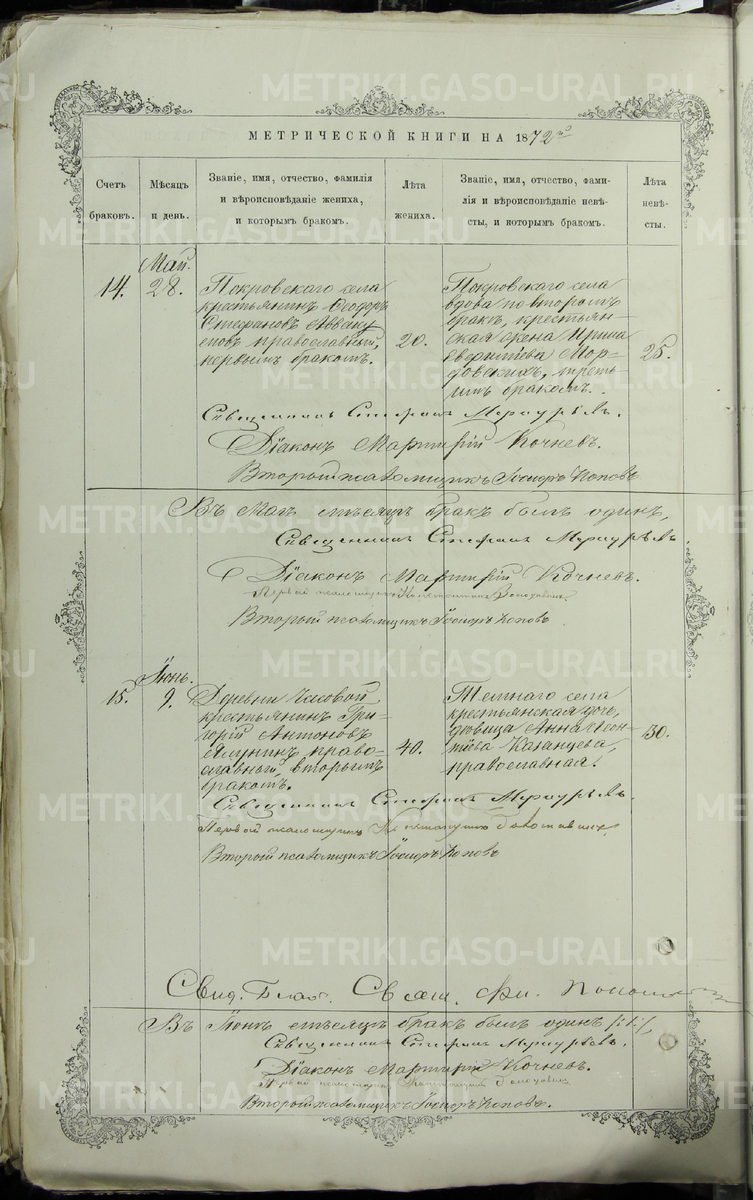 МЕТРИЧЕСКОЙ КНИГИ НА 1872й
Счетъ
браковъ.
Мѣсяцъ
и день.
Званіе, имя, отчество, фамилія
и вѣроисповѣданіе жениха,
и которымъ бракомъ.
Лѣта
жениха.
Званіе, имя, отчество, фами-
лія и вѣроисповѣданіе невѣ-
сты, и которымъ бракомъ.
Лѣта
невѣ-
сты.
14.
Май.
28.
Покровскаго села
крестьянинъ Ѳеодоръ
Стефановъ Авваку
мовъ православный,
первымъ бракомъ.
20.
Покровскаго села
вдова по второмъ
бракѣ, крестьян-
ская жена Ирина
Мор-
довскихъ, треть-
имъ бракомъ.
25.
Священникъ Стефанъ
Діаконъ Мартирій Кочневъ.
Второй псаломщикъ Іосифъ Поповъ
Въ Маѣ мѣсяцѣ бракъ былъ одинъ,
Священникъ Стефанъ
Діаконъ Мартирій Кочневъ.
Первый псаломщикъ
Второй псаломщикъ Іосифъ Поповъ
15.
Іюнь.
9.
Деревни Часовой
крестьянинъ Гри-
горій Антоновъ
Ялунинъ, право-
славный, вторымъ
бракомъ.
40.
Темнаго села
крестьянская дочь
дѣвица Анна Леон-
тіева Казанцева,
православная.
30.
Священникъ Стефанъ
Первый псаломщикъ
Второй псаломщикъ Іосифъ Поповъ
Свид. Благ. Свящ.
Въ Іюнѣ мѣсяцѣ бракъ былъ одинъ /:1:/,
Священникъ Стефанъ
Діаконъ Мартирій Кочневъ.
Первый псаломщикъ
Второй псаломщикъ Іосифъ Поповъ.
METRIKI.GASO-URAL.RU